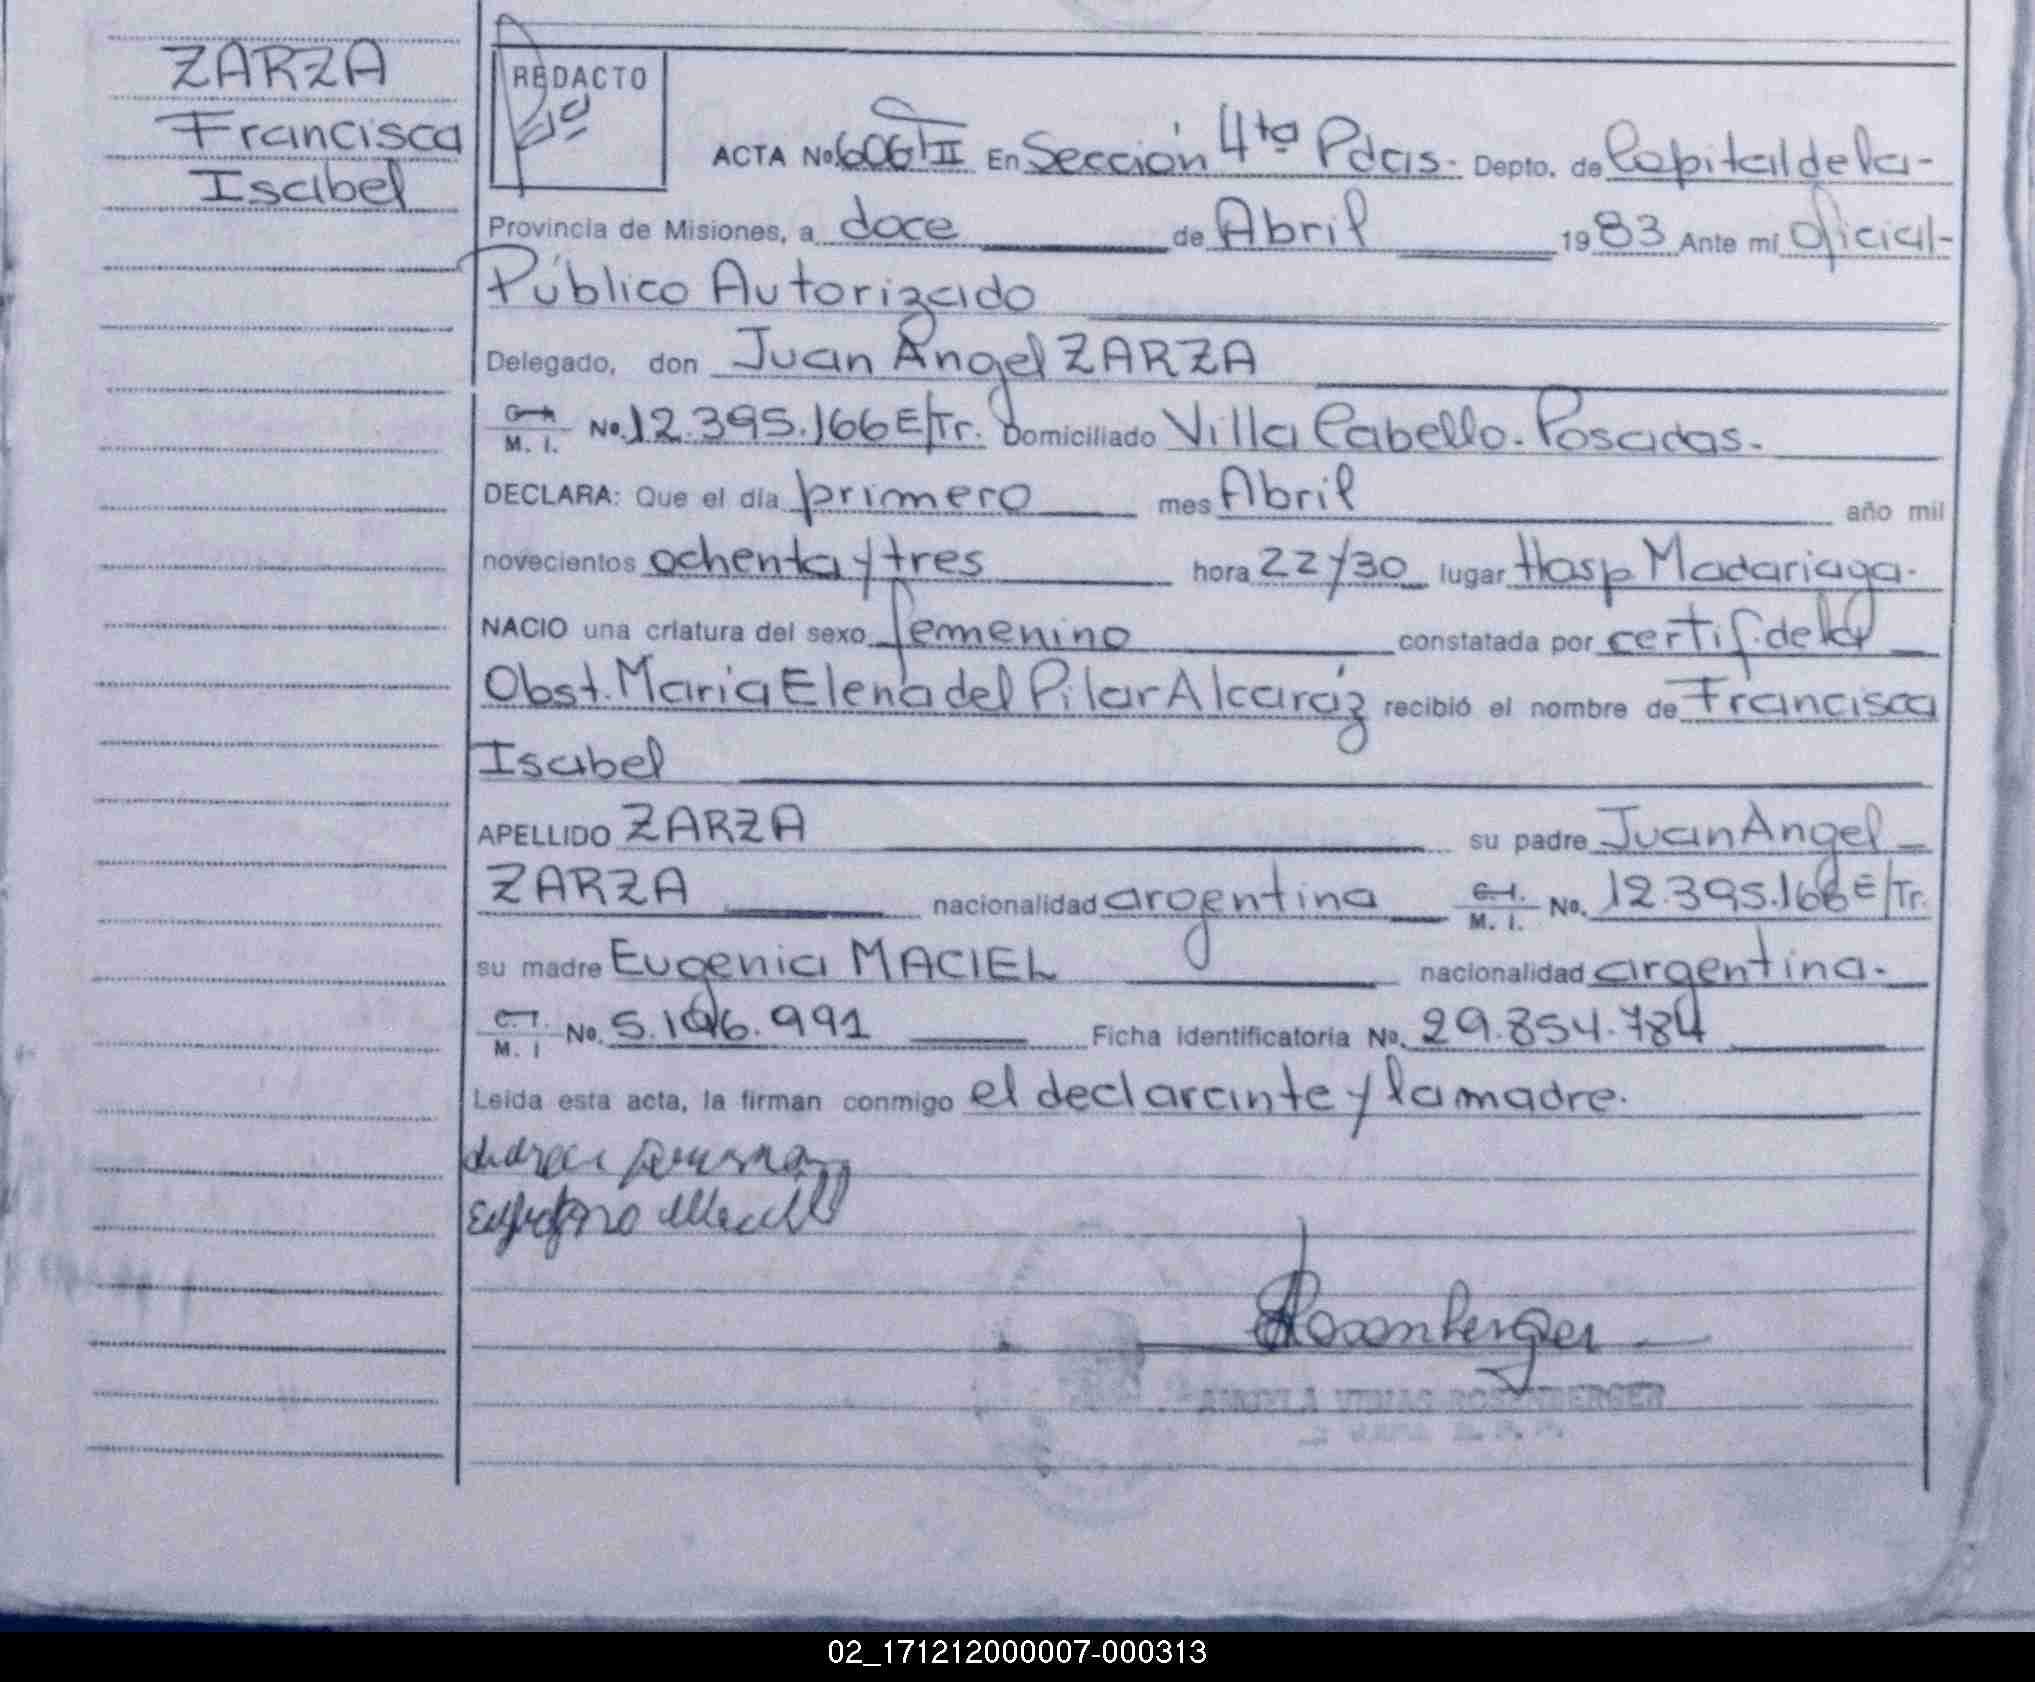 ZARZA
Francisca
Isabel
REDACTO
ACTA No. 606 TII En Sección 4ta Pdas. Depto. de Capital de la-
Provincia de Misiones, a doce de Abril 1983 Ante mí Oficial-
Público Autorizado
Delegado, don Juan Angel ZARZA
C. I.
M. I. No. 12.395.166 E/Tr. Domiciliado Villa Cabello. Posadas.
DECLARA: Que el día primero mes Abril año mil
novecientos ochenta y tres hora 22 y 30 lugar Hosp Madariaga.
NACIO una criatura del sexo femenino constatada por certif. de la
Obst. María Elena del Pilar Alcaráz recibió el nombre de Francisca
Isabel
APELLIDO ZARZA su padre Juan Angel
ZARZA nacionalidad argentina C. I. M. I. No. 12.395.166 E/Tr.
su madre Eugenia MACIEL nacionalidad argentina.
C. I.
M. I No. 5.196.991 Ficha identificatoria No. 29.854.784
Leída esta acta, la firman conmigo el declarante y la madre.
Rosenberger
ROSENBERGER
02_171212000007-000313